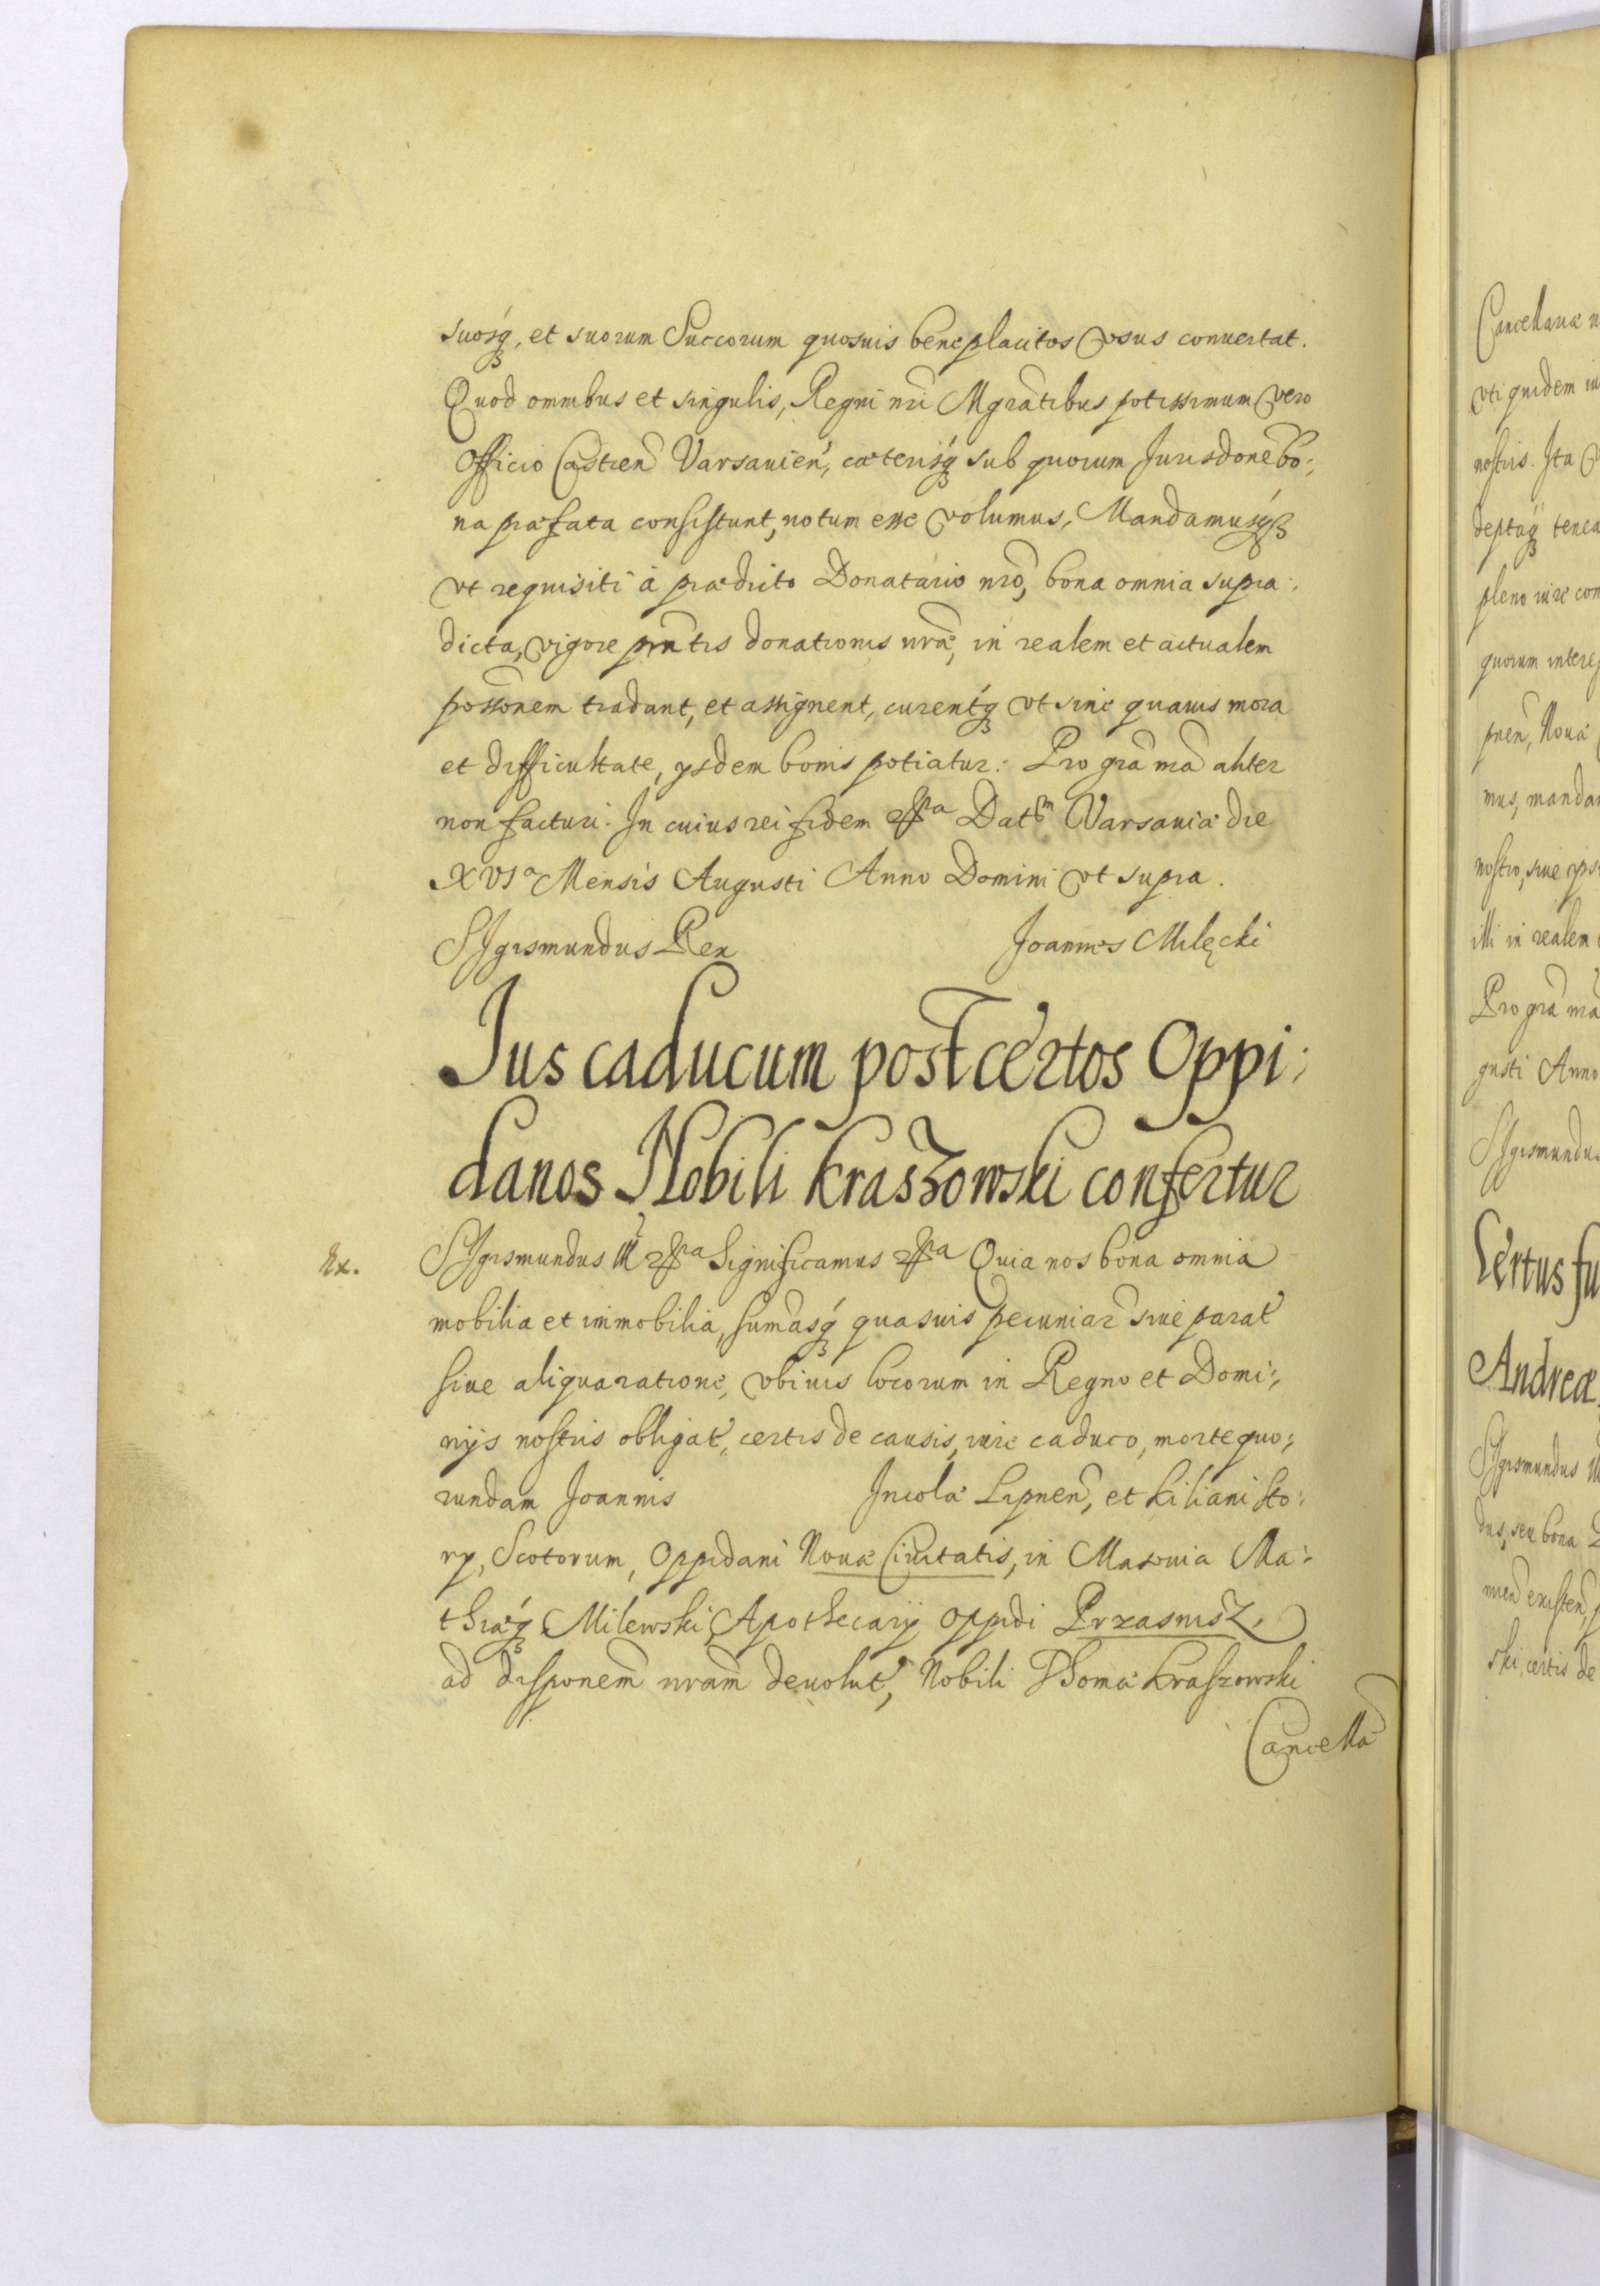 suosq, et suorum Succorum quosuis beneplacitos vsus conuertat.
Quod omnibus et singulis, Regni nri Mgratibus potissimum vero
Officio Castren Varsauien, cæterisq sub quorum Jurisdone bo:
na præfata consistunt, notum esse volumus, Mandamusq
vt requisiti à prædicto Donatario nro, bona omnia supra:
dicta, vigore pntis donationis nræ, in realem et actualem
possonem tradant, et assignent, curentq vt sine quauis mora
et difficultate, ysdem bonis potiatur. Pro gra nra aliter
non facturi. In cuius rei fidem Dat Varsauiæ die
XVI a Mensis Augusti Anno Domini vt supra.
SIgismundus Rex Joannes Milęcki
Ius caducum post certos Oppi:
danos Nobili Kraszowski confertur
Ex. SIgismundus III Significamus Quia nos bona omnia
mobilia et immobilia, sumasq quasuis pecuniar siue parat
siue aliqua ratione, vbiuis locorum in Regno et Domi:
nijs nostris obligat, certis de causis, iure caduco, morte quo:
rundam Joannis Incolæ Lipnen, et Kiliani Sto:
ry, Scotorum, Oppidani Nouæ Ciuitatis, in Masouia Ma:
thiæq Milewski Apothecarij oppidi Przasnisz,
ad disponem nram deuolut, Nobili Thomæ Kraszowski
Cancella
Cancellariæ
vti quidem
nostris. Ita
deptaq
pleno iure con
quorum intere
pnen, Nouæ
mus, manda
nostro, siue
illi in realem
Pro gra nra
gusti Anno
SIgismundu
Certus fu
Andreæ
SIgismundus
dus, seu bona
existen,
ski, certis de